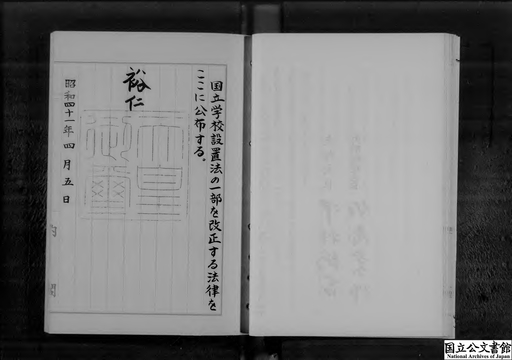 国立学校設置法の一部を改正する法律を
ここに公布する。
裕仁
天皇
御璽
昭和四十一年四月五日
国立公文書館
National Archives of Japan